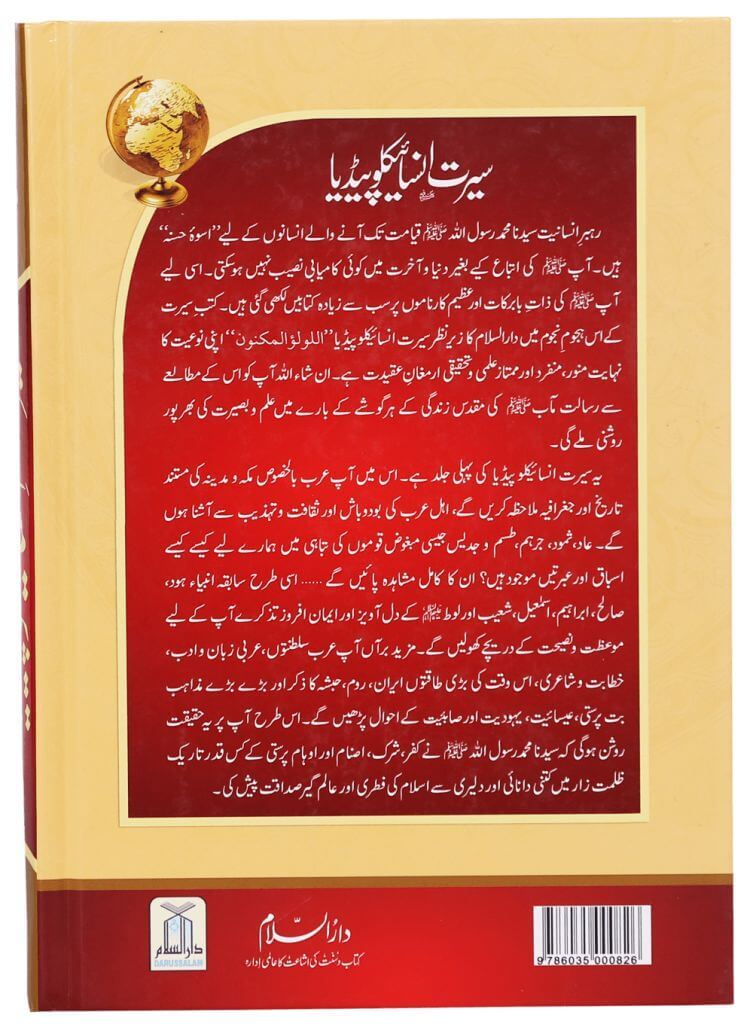 سیرت انسائیکلوپیڈیا
ﷺ
رہبرِ انسانیت سیدنا محمد رسول اللہ ﷺ قیامت تک آنے والے انسانوں کے لیے "اسوۂ حسنہ"
ہیں۔ آپ ﷺ کی اتباع کے بغیر دنیا و آخرت میں کوئی کامیابی نصیب نہیں ہوسکتی۔ اسی لیے
آپ ﷺ کی ذاتِ بابرکات اور عظیم کارناموں پر سب سے زیادہ کتابیں لکھی گئی ہیں۔ کتب سیرت
کے اس ہجومِ نجوم میں دارالسلام کا زیرِ نظر سیرت انسائیکلوپیڈیا "اللولؤ المکنون" اپنی نوعیت کا
نہایت منور، منفرد اور ممتاز علمی و تحقیقی ارمغانِ عقیدت ہے۔ ان شاء اللہ آپ کو اس کے مطالعے
سے رسالت مآب ﷺ کی مقدس زندگی کے ہر گوشے کے بارے میں علم و بصیرت کی بھرپور
روشنی ملے گی۔
یہ سیرت انسائیکلوپیڈیا کی پہلی جلد ہے۔ اس میں آپ عرب بالخصوص مکہ و مدینہ کی مستند
تاریخ اور جغرافیہ ملاحظہ کریں گے، اہل عرب کی بود و باش اور ثقافت و تہذیب سے آشنا ہوں
گے۔ عاد، ثمود، جرہم، طسم و جدیس جیسی مبغوض قوموں کی تباہی میں ہمارے لیے کیسے کیسے
اسباق اور عبرتیں موجود ہیں؟ ان کا کامل مشاہدہ پائیں گے ...... اسی طرح سابقہ انبیاء ہود،
صالح، ابراہیم، اسمٰعیل، شعیب اور لوط علیہم السلام کے دل آویز اور ایمان افروز تذکرے آپ کے لیے
موعظت و نصیحت کے دریچے کھولیں گے۔ مزید برآں آپ عرب سلطنتوں، عربی زبان و ادب،
خطابت و شاعری، اس وقت کی بڑی طاقتوں ایران، روم، حبشہ کا ذکر اور بڑے بڑے مذاہب
بت پرستی، عیسائیت، یہودیت اور صابئیت کے احوال پڑھیں گے۔ اس طرح آپ پر یہ حقیقت
روشن ہوگی کہ سیدنا محمد رسول اللہ ﷺ نے کفر، شرک، اصنام اور اوہام پرستی کے کس قدر تاریک
ظلمت زار میں کتنی دانائی اور دلیری سے اسلام کی فطری اور عالم گیر صداقت پیش کی۔
دارالسلام
DARUSSALAM
دارُالسّلام
کتاب و سنت کی اشاعت کا عالمی ادارہ
9 786035 000826